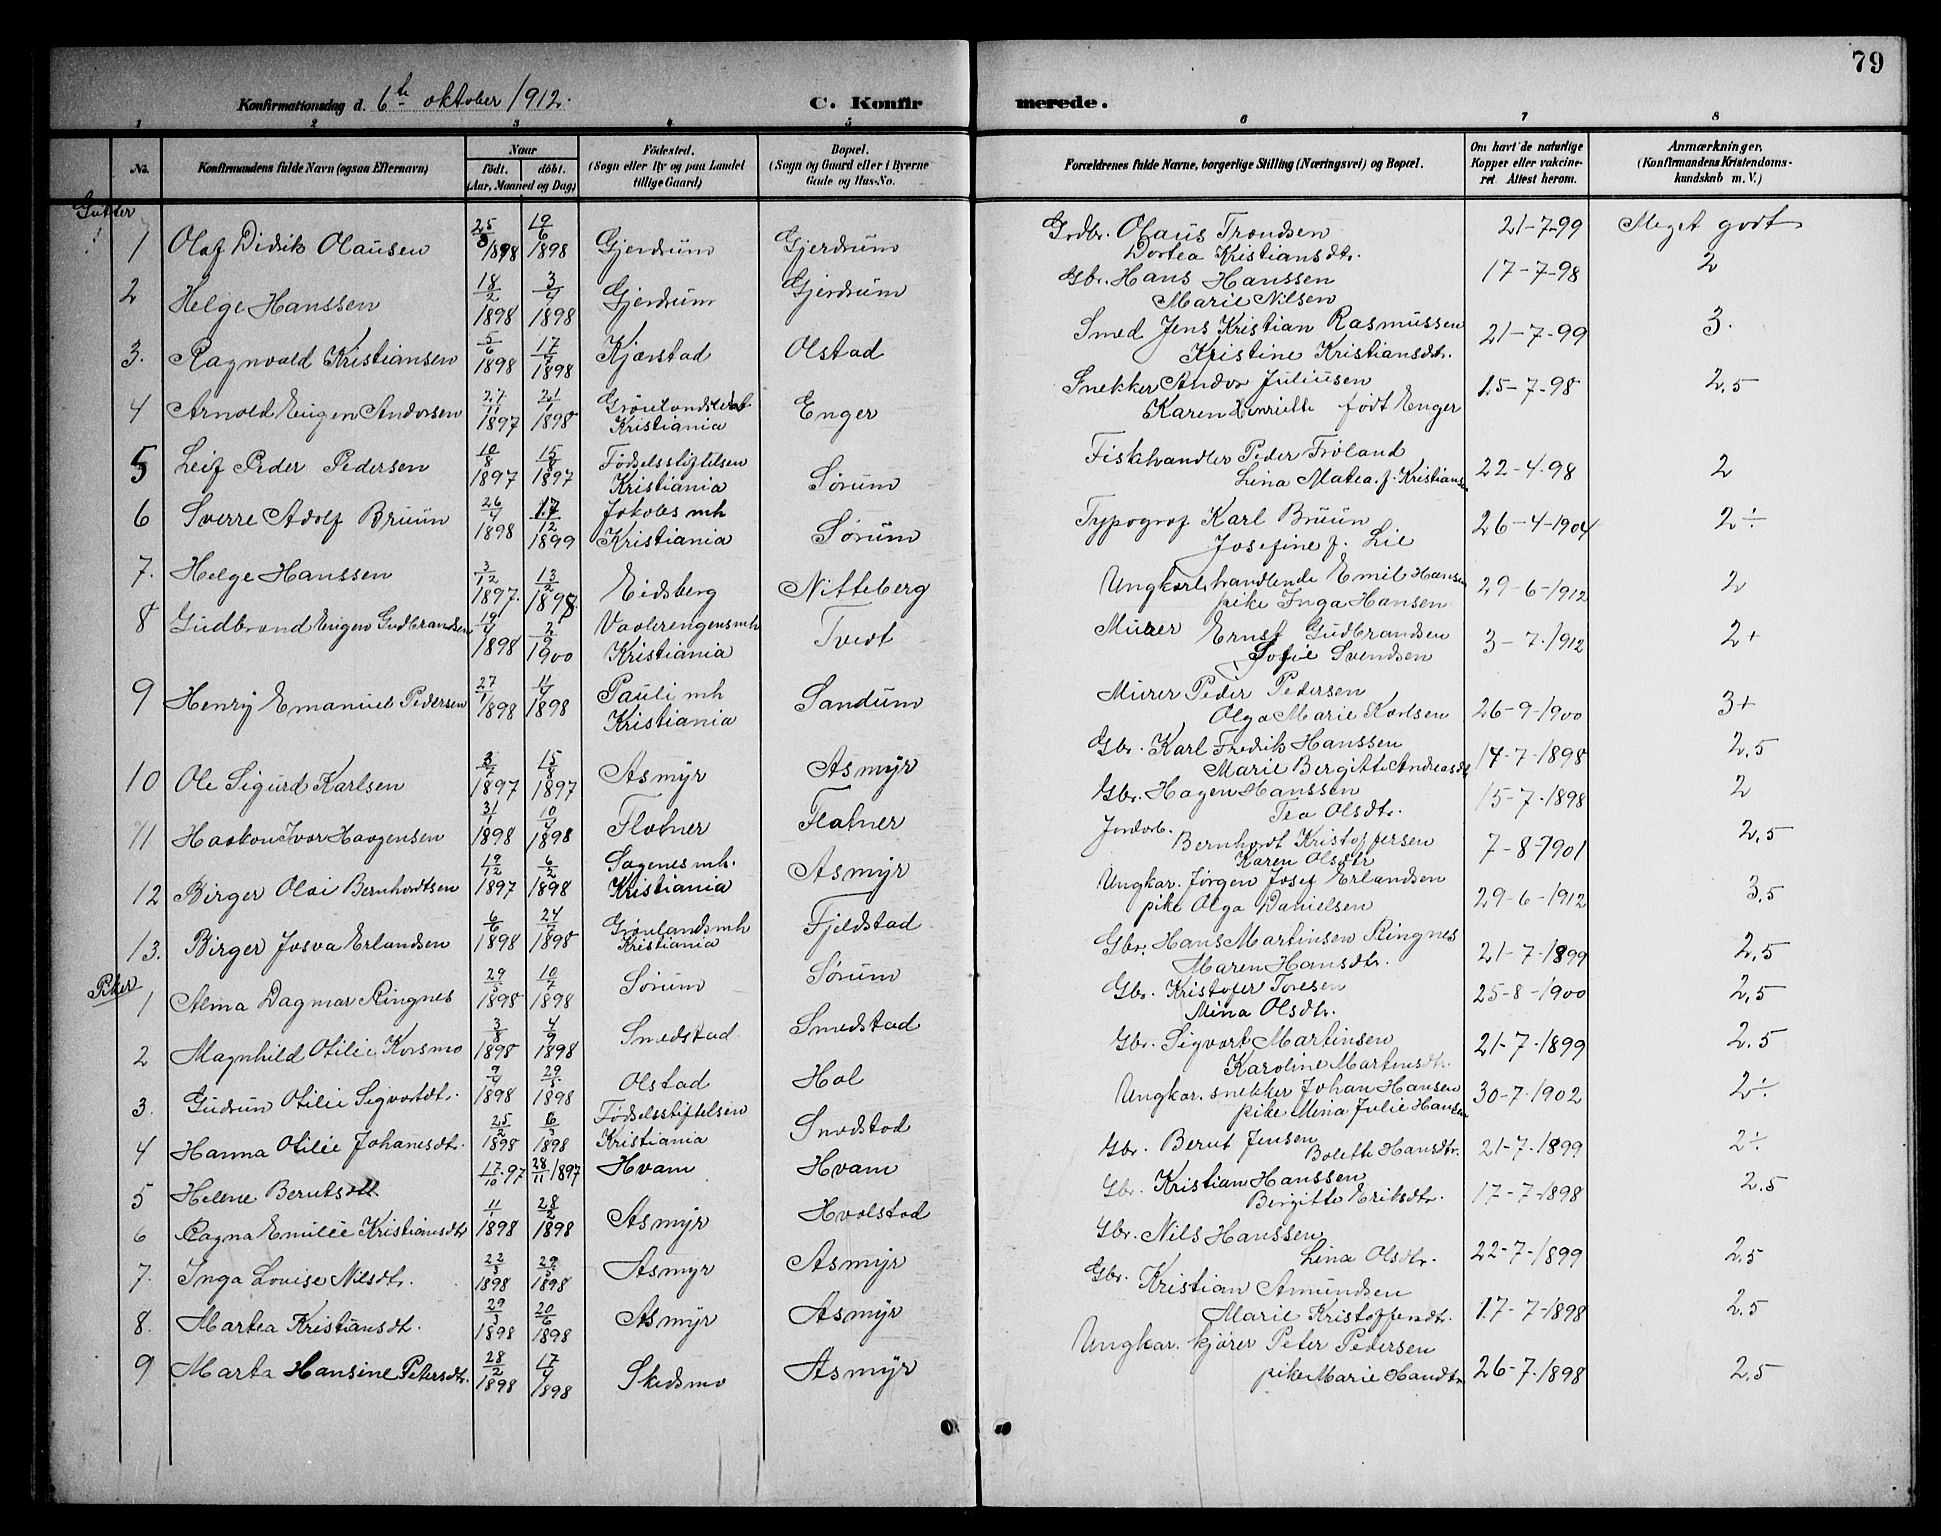 79
Konfirmationsdag d. 6te oktober 1912. C. Konfirmerede.
1 2 3 4 5 6 7 8
No. Konfirmandens fulde Navn (ogsaa Efternavn) Naar födt. döbt. (Aar, Maaned og Dag) Födested. (Sogn eller By og paa Landet tillige Gaard) Bopæl. (Sogn og Gaard eller i Byerne Gade og Hus-No. Forældrenes fulde Navne, borgerlige Stilling (Næringsvei) og Bopæl. Om havt de naturlige Kopper eller vakcineret Attest herom. Anmærkninger. (Konfirmandens Kristendomskundskab m. V.)
Gutter
1 Olaf Didrik Olausen 25/3 1898 19/6 1898 Gjerdrum Gjerdrum Grdbr. Olaus Trondsen Dortea Kristiansdtr. 21-7-99 Meget godt
2 Helge Hanssen 18/2 1898 3/4 1898 Gjerdrum Gjerdrum Gbr. Hans Hanssen Marie Nilsen 17-7-98 2
3. Ragnvald Kristiansen 5/6 1898 17/7 1898 Kjærstad Olstad Smed Jens Kristian Rasmussen Kristine Kristiansdtr. 21-7-99 3.
4 Arnold Eugen Andorsen 27/11 1897 21/1 1898 Grønlandsleret Kristiania Enger Snekker Andor Juliusen Karen Henriette født Enger 15-7-98 2,5
5 Leif Peder Pedersen 10/8 1897 15/8 1897 Fødselsstiftelsen Kristiania Sørum Fiskhandler Peder Frøland Lina Matea f. Kristiansen 22-4-98 2
6 Sverre Adolf Bruun 26/4 1898 17/12 1899 Jakobs mh Kristiania Sørum Typograf Karl Bruun Josefine f. Lie 26-4-1904 2÷
7. Helge Hanssen 3/12 1897. 13/2 1898 Eidsberg Nitteberg Ungkarl handlende Emil Hansen pike Inga Hansen 29-6-1912 2
8 Gudbrand Eugen Gudbrandsen 19/4 1898 2/9 1900 Vaalerengens mh Kristiania Tvedt Murer Ernst Gudbrandsen Sofie Svendsen 3-7-1912 2+
9 Henry Emanuel Pedersen 27/1 1898 11/4 1898 Pauli mh Kristiania Sandum Murer Peder Pedersen Olga Marie Karlsen 26-9-1900 3+
10 Ole Sigurd Karlsen 3/7 1897 15/8 1897 Asmyr Asmyr Gbr. Karl Fredrik Hanssen Marie Bergitte Andreasdtr 17-7-1898 2,5
11 Haakon Ivar Haagensen 31/1 1898 10/4 1898 Flatner Flatner Gbr. Hagen Hanssen Tea Olsdtr. 15-7-1898 2
12 Birger Olai Bernhardtsen 19/12 1897 6/2 1898 Sagenes mh. Kristiania Asmyr Jordarb. Bernhardt Kristoffersen Karen Olsdtr 7-8-1901 2,5
13. Birger Josva Erlandsen 6/6 1898 24/7 1898 Grønlands mh Kristiania Fjeldstad Ungkar. Jørgen Josef Erlandsen pike Olga Danielsen 29-6-1912 3,5
Piker
1 Alma Dagmar Ringnes 29/5 1898 10/7 1898 Sørum Sørum Gbr. Hans Martinsen Ringnes Maren Hansdtr. 21-7-1899 2,5
2 Magnhild Otilie Korsmo 3/8 1898 4/9 1898 Smedstad Smedstad Gbr. Kristofer Toresen Mina Olsdtr. 25-8-1900 2,5
3. Gudrun Otilie Sigvartdtr. 9/4 1898 29/5 1898 Olstad Hol Gbr. Sigvart Martinsen Karoline Martinsdtr. 21-7-1899 2.5
4 Hanna Otilie Johansdtr. 25/2 1898 6/3 1898 Fødselsstiftelsen Kristiania Smedstad Ungkar. snekker Johan Hansen pike Mina Julie Hansen 30-7-1902 2÷
5 Helene Berntsdtr 17/10 97 28/11 1897 Hvam Hvam Gbr. Bernt Jensen Bolette Hansdtr. 21-7-1899 2÷
6 Ragna Emilie Kristiansdtr 11/1 1898 28/2 1898 Asmyr Hvalstad Gbr. Kristian Hanssen Bergitte Eriksdtr. 17-7-1898 2.5
7. Inga Lovise Nilsdtr. 22/3 1898 29/5 1898 Asmyr Asmyr Gbr. Nils Hanssen Lina Olsdtr. 22-7-1899 2,5
8. Martea Kristiansdt. 29/3 1898 20/6 1898 Asmyr Asmyr Gbr. Kristian Amundsen Marie Kristoffersdtr. 17-7-1898 2.5
9 Marta Hansine Petersdtr. 28/2 1898 17/4 1898 Skedsmo Asmyr Ungkar. kjører Peter Pedersen pike Marie Handtr 26-7-1898 2,5